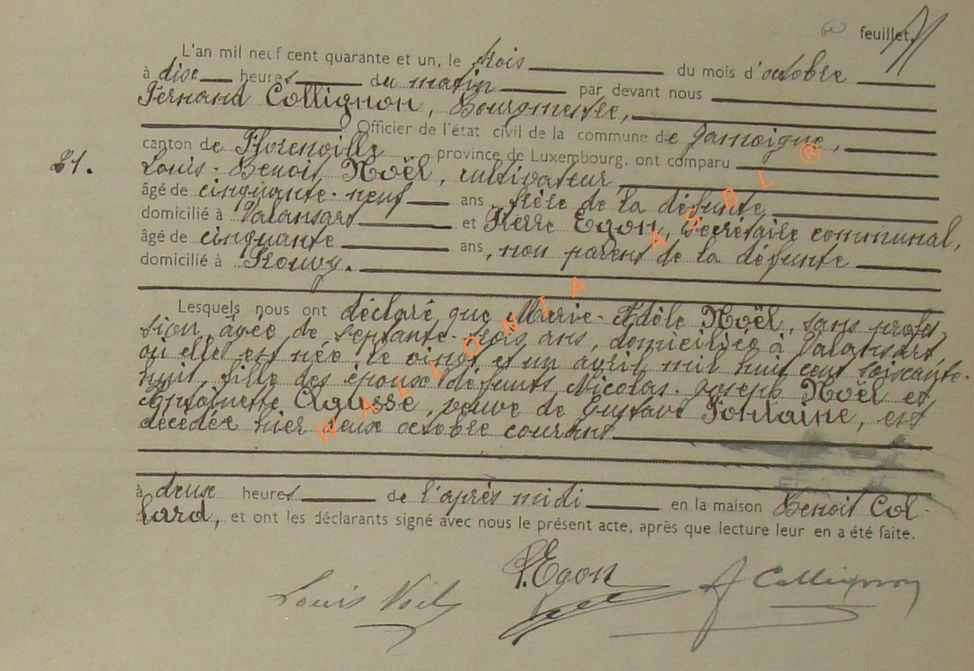 feuillet.
L'an mil neuf cent quarante et un, le trois du mois d'octobre
à dix heures du matin par devant nous
Fernand Collignon, Bourgmestre,
Officier de l'état civil de la commune de Jamoigne,
canton de Florenville province de Luxembourg, ont comparu
21.
Louis-Benoit Noël, cultivateur,
âgé de cinquante-neuf ans, frère de la défunte
domicilié à Valansart et Pierre Egon, secrétaire communal,
âgé de cinquante ans, non parent de la défunte
domicilié à
Lesquels nous ont déclaré que Marie-Adèle Noël, sans profes
sion, âgée de septante-trois ans, domiciliée à Valansart
où elle est née le vingt et un avril mil huit cent soixante-
huit, fille des époux défunts Nicolas-Joseph Noël et
Antoinette veuve de Gustave Fontaine, est
décédée hier deux octobre courant
à deux heures de l'après midi en la maison Benoit Col-
lard, et ont les déclarants signé avec nous le présent acte, après que lecture leur en a été faite.
Louis Noël P. Egon F Collignon
WALLONIA ASBL ®